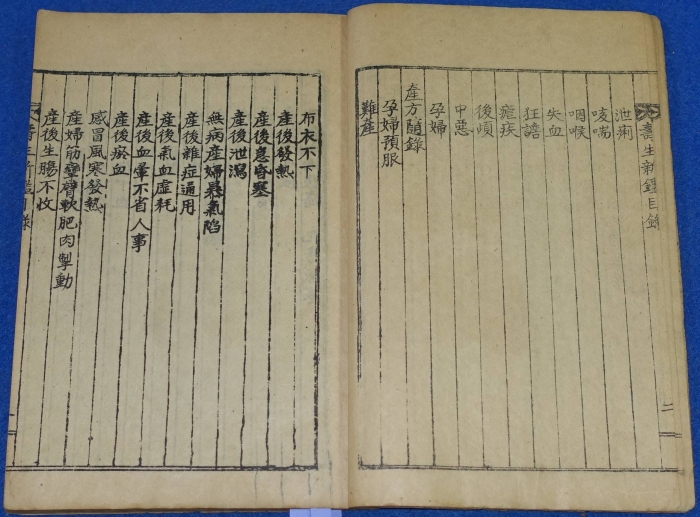 壽生新鑑目錄
泄痢
咳喘
咽喉
失血
狂譫
瘧疾
後項
中惡
孕婦
產方
孕婦預服
難產
布衣不下
產後發熱
產後悬昏塞
產後泄瀉
無病產婦暴氣陷
產後雜症通用
產後氣血虛耗
產後血暈不省人事
產後瘀血
感冒風寒發熱
產婦筋攣臂軟肥肉掣動
產後生腸不收
目錄
二